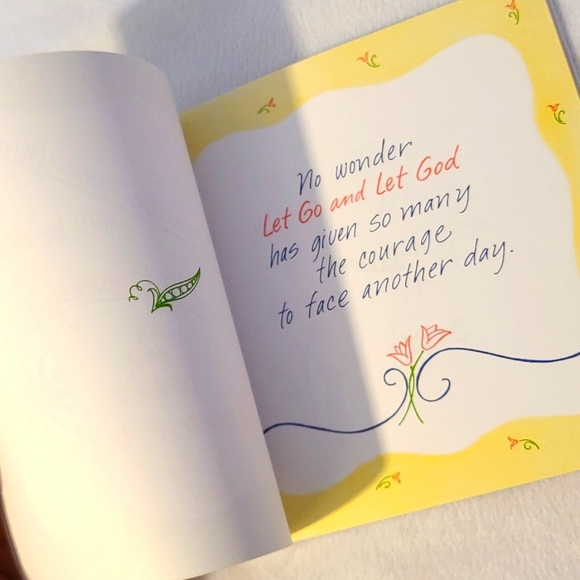 No wonder
Let Go and Let God
has given so many
the courage
to face another day.